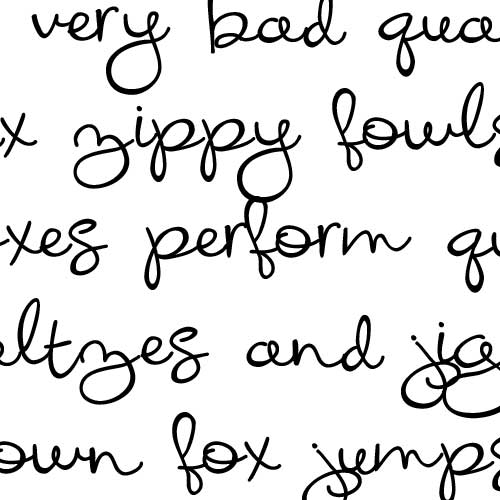 very bad qua
x zippy fowls
xes perform qu
eltzes and ja
own fox jumps